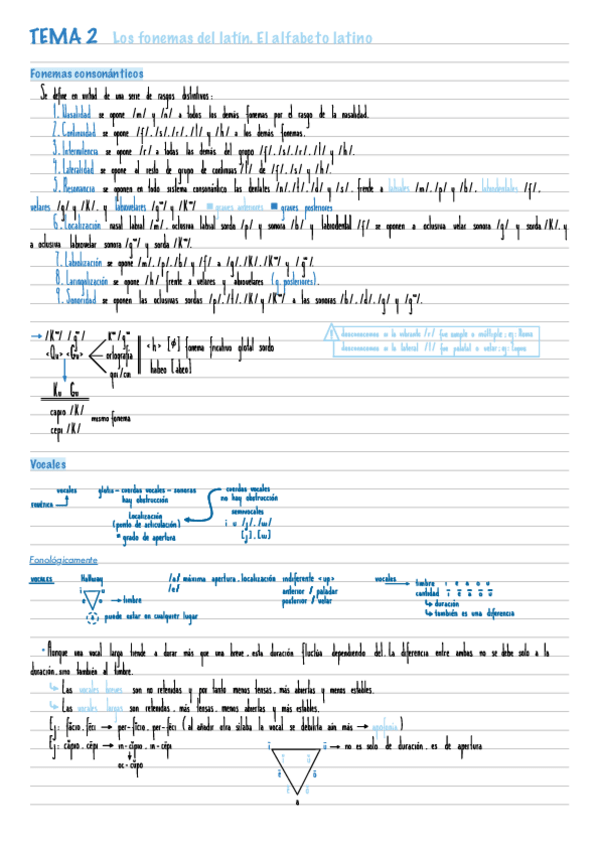 TEMA 2 Los fonemas del latín. El alfabeto latino
Fonemas consonánticos
Se define en virtud de una serie de rasgos distintivos:
1. Nasalidad se opone /m/ y /n/ a todos los demás fonemas por el rasgo de la nasalidad.
2. Continuidad se opone /f/, /s/, /r/, /l/ y /h/ a los demás fonemas.
3. Intermitencia se opone /r/ a todas las demás del grupo /f/, /s/, /r/, /l/ y /h/.
4. Lateralidad se opone al resto de grupo de continuas /l/ de /f/, /s/ y /h/.
5. Resonancia se oponen en todo sistema consonántico las dentales /n/, /t/, /d/ y /s/, frente a labiales /m/, /p/ y /b/, labiodentales /f/,
velares /g/ y /K/, y labiovelares /gʷ/ y /Kʷ/ graves anteriores graves posteriores
6. Localización nasal labial /m/, oclusiva labial sorda /p/ y sonora /b/ y labiodental /f/ se oponen a oclusiva velar sonora /g/ y sorda /K/, y
a oclusiva labiovelar sonora /gʷ/ y sorda /Kʷ/.
7. Labialización se opone /m/, /p/, /b/ y /f/ a /g/, /K/, /Kʷ/ y /gʷ/.
8. Laringalización se opone /h/ frente a velares y labiovelares (g. posteriores).
9. Sonoridad se oponen las oclusivas sordas /p/, /t/, /K/ y /Kʷ/ a las sonoras /b/, /d/, /g/ y /gʷ/.
→ /Kʷ/ /gʷ/ Kʷ/gʷ
<Qu> <Gu> ortografía
qui/cui
<h> [ɸ] fonema fricativo glotal sordo
habeo [abeo]
desconocemos si la vibrante /r/ fue simple o múltiple; ej: Roma
desconocemos si la lateral /l/ fue palatal o velar; ej:
Ku Gu
capio /K/
cepi /K/
mismo fonema
Vocales
vocales
fonética
glotis - cuerdas vocales - sonoras
hay obstrucción
Localización
(punto de articulación)
grado de apertura
cuerdas vocales
no hay obstrucción
semivocales
i u /j/, /w/
[j], [w]
Fonológicamente
vocales Hallwag
i u
→ timbre
puede estar en cualquier lugar
/a/ máxima apertura, localización indiferente <up>
anterior / paladar
posterior / velar
vocales
timbre i e a o u
cantidad ī ē ā ō ū
duración
también es una diferencia
• Aunque una vocal larga tiende a durar más que una breve, esta duración fluctúa dependiendo del. La diferencia entre ambas no se debe solo a la
duración, sino también al timbre.
Las vocales breves son no retenidas y por tanto menos tensas, más abiertas y menos estables.
Las vocales largas son retenidas, más tensas, menos abiertas y más estables.
Ej: făcio, fēci → per-fĭcio, per-fēci (al añadir otra sílaba la vocal se debilita aún más → apofonía)
Ej: căpio, cēpi → in-cĭpio, in-cēpi
oc-cŭpo
ī ū → no es solo de duración, es de apertura
ē ō
a